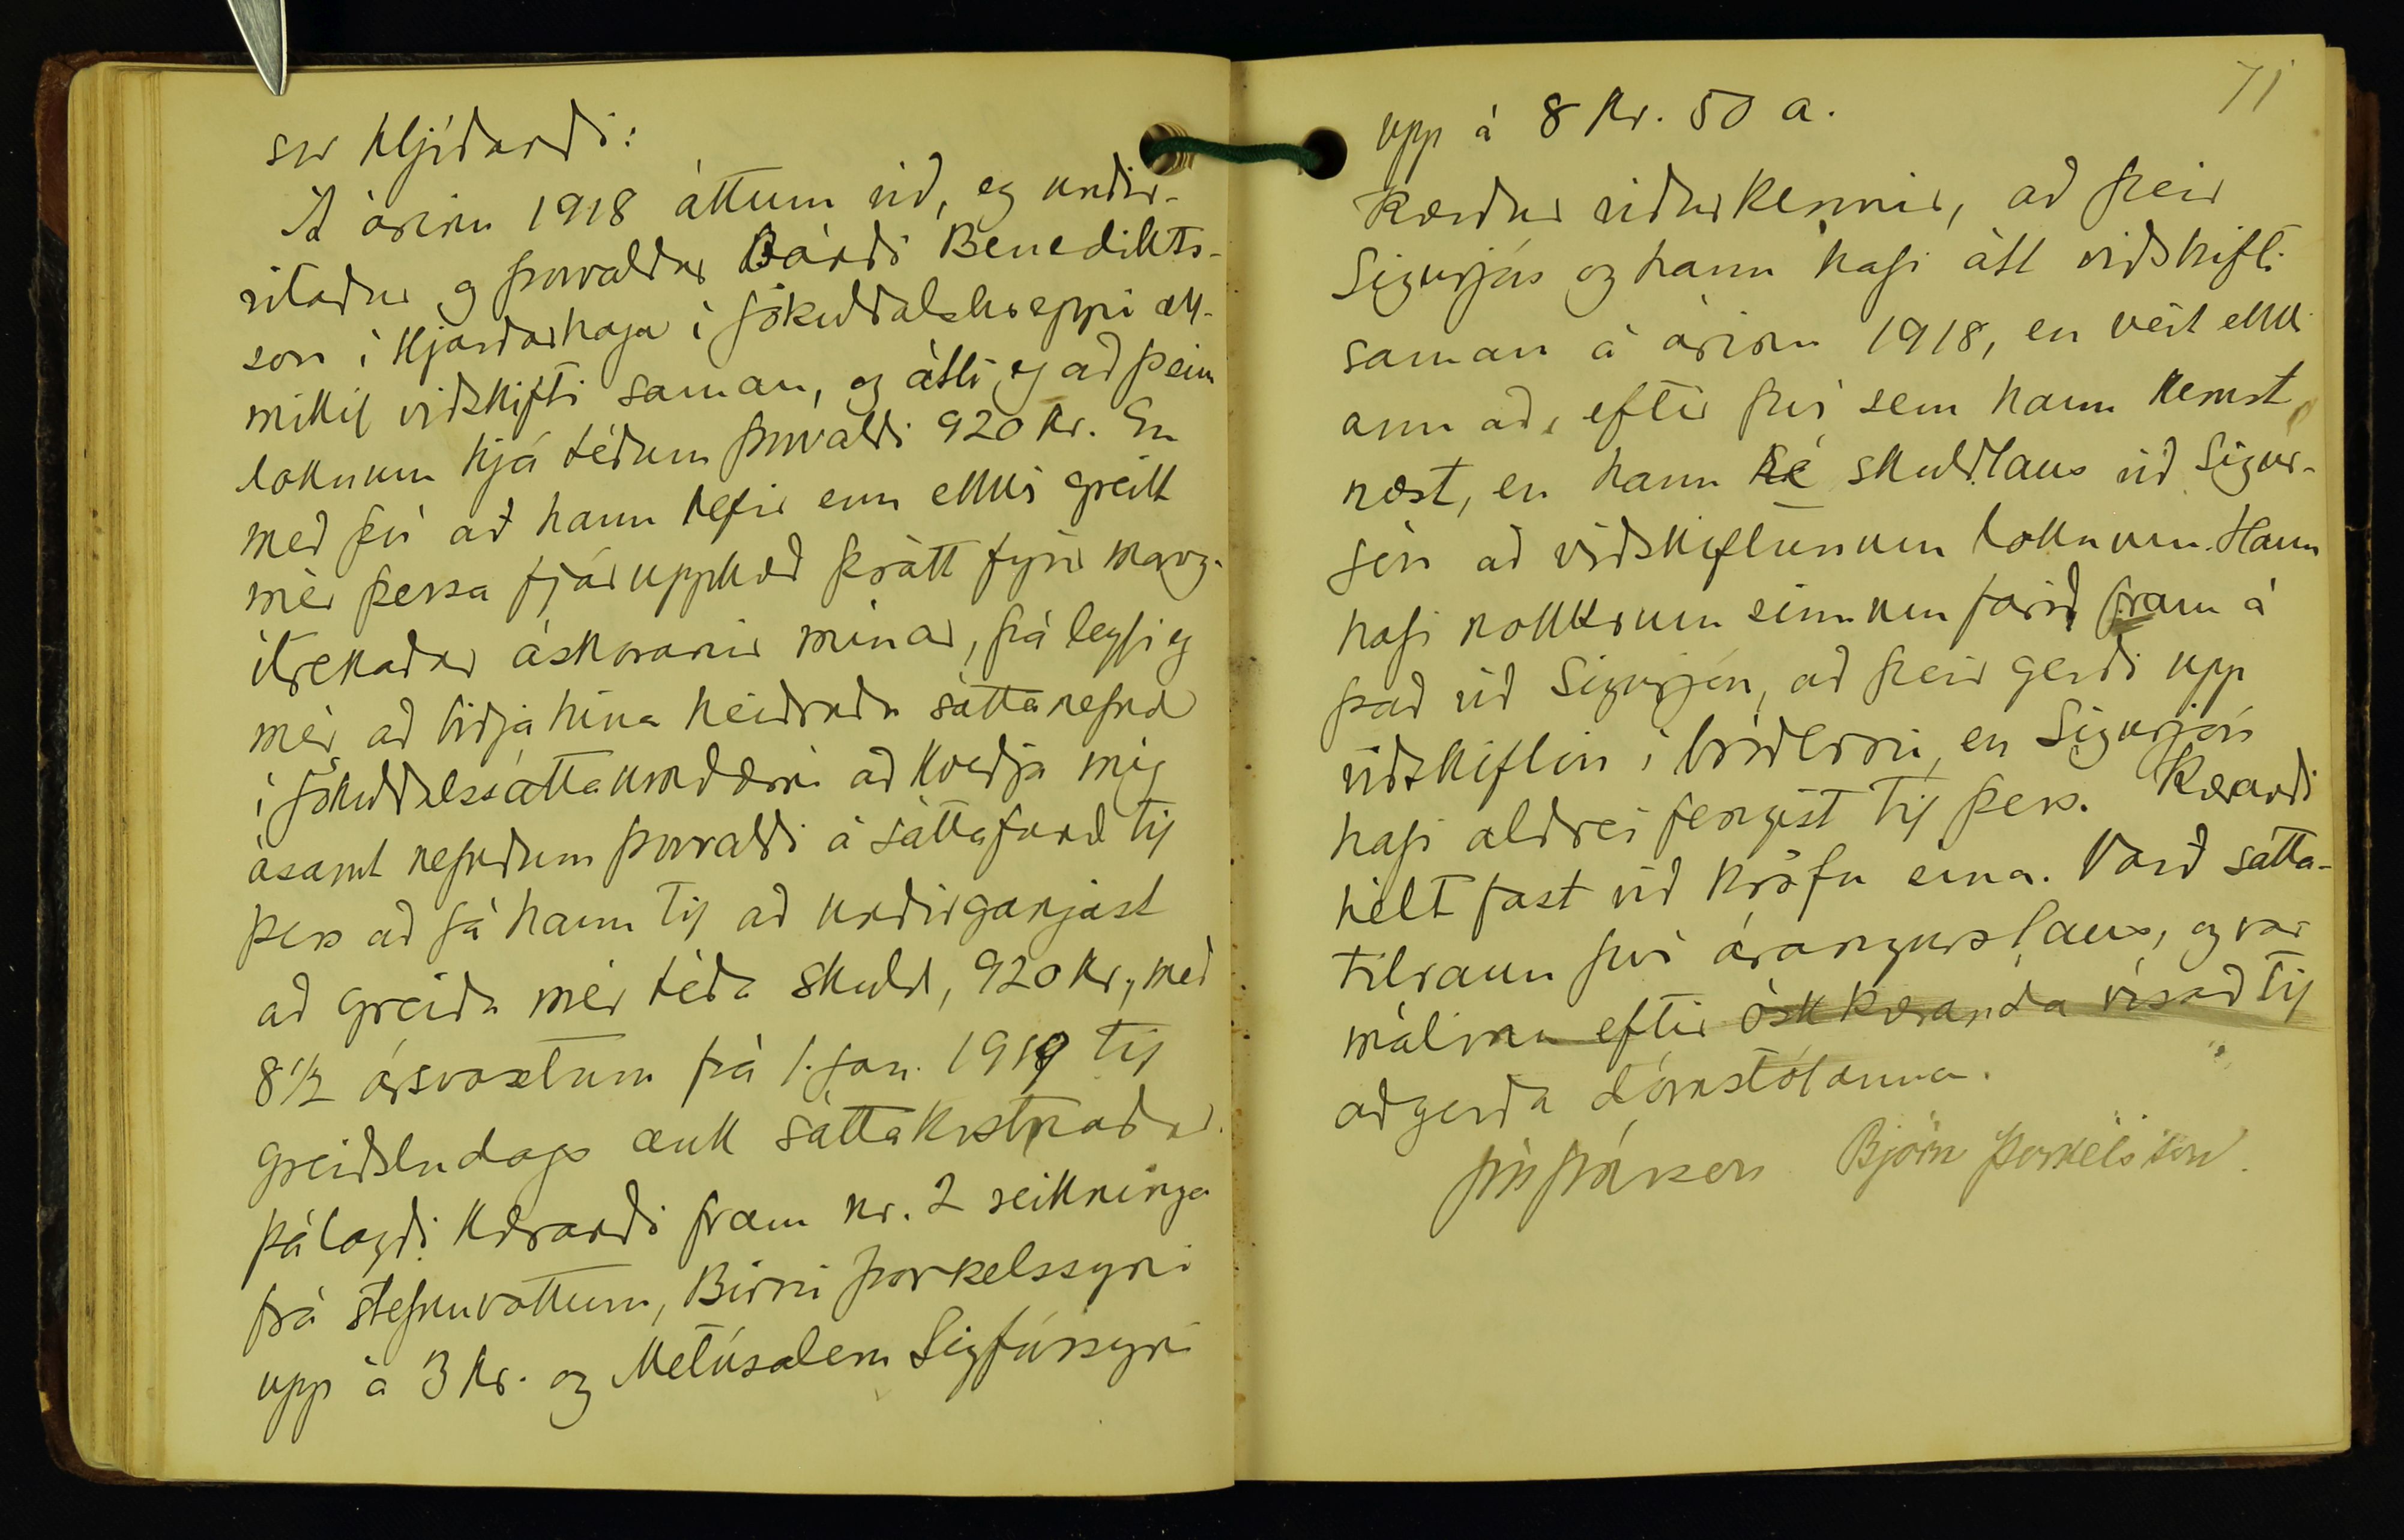 svo hljóðandi:
Á árinu 1918 áttum við, eg undir-
ritaður og Þorvaldur Bóndi Benedikts-
son í Hjarðarhaga í Jökuldalshreppi all-
mikil viðskifti saman, og átti eg að þeim
loknum hjá téðum Þorvaldi 920 kr. En
með því að hann hefir enn ekki greitt
mér þessa fjárupphæð þrátt fyrir marg-
ítrekaðar áskoranir mínar, þá leyfi eg
mér að biðja hina heiðruðu sáttanefnd
í Jökuldalssáttaumdæmi að kveðja mig
ásamt nefndum Þorvaldi á sáttafund til
þess að fá hann til að undirgangast
að greiða mér téða skuld, 920 kr., með
8½ ársvöxtum frá 1. jan. 1919 til
greiðsludags auk sáttakostnaðar.
Þá lagði kærandi fram nr. 2 reikninga
frá stefnuvottum, Birni Þorkelssyni
upp á 3 kr. og Metúsalem Sigfússyni
71
upp á 8 kr. 50 a.
Kærður viðurkennir, að þeir
Sigurjón og hann hafi átt viðskifti
saman á árinu 1918, en veit ekki
annað, eftir því sem hann kemst
næst, en hann sé skuldlaus við Sigur-
jón að viðskiftunum loknum. Hann
hafi nokkrum sinnum farið fram á
það við Sigurjón, að þeir gerði upp
viðskiftin í bróðerni, en Sigurjón
hafi aldrei fengist til þess. Kærandi
hélt fast við kröfu sína. Varð sátta-
tilraun því árangurslaus, og var
málinu eftir ósk kæranda vísað til
aðgerða dómstólanna.
Björn Þorkelsson.